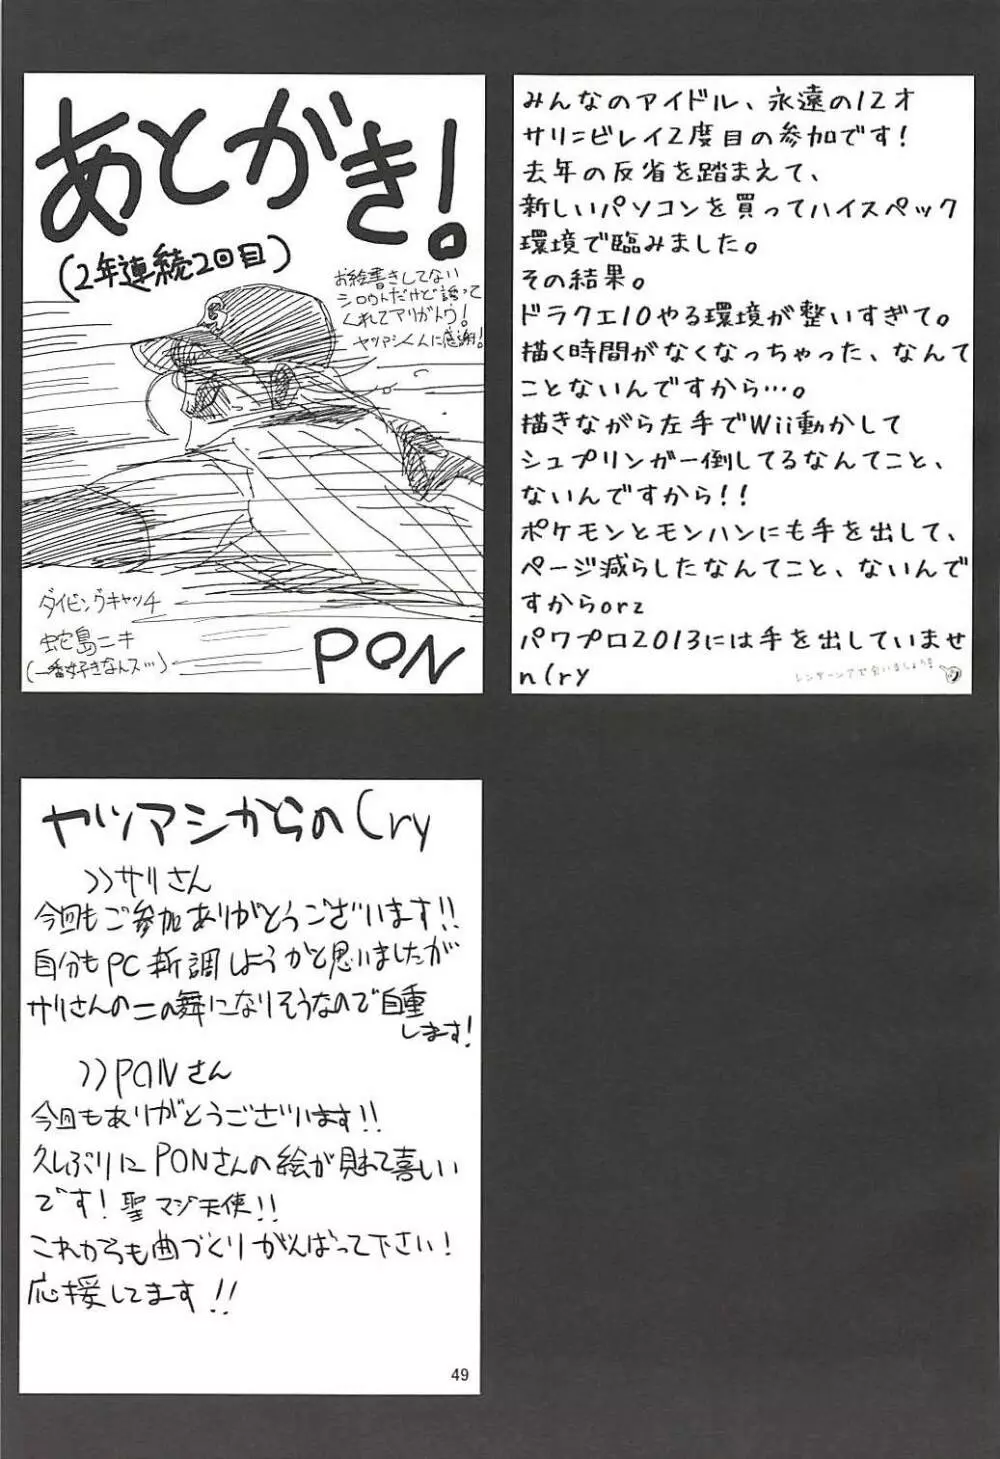 あとがき!
(2年連続2回目)
お絵書きしてない
シロウトだけど誘って
くれてアリガトウ!
ヤツアシくんに感謝!
ダイビングキャッチ
蛇島ニキ
(一番好きなんス…)
PON
みんなのアイドル、永遠の12才
サリ=ビレイ2度目の参加です!
去年の反省を踏まえて、
新しいパソコンを買ってハイスペック
環境で臨みました。
その結果。
ドラクエ10やる環境が整いすぎて。
描く時間がなくなっちゃった、なんて
ことないんですから…。
描きながら左手でWii動かして
シュプリンガー倒してるなんてこと、
ないんですから!!
ポケモンとモンハンにも手を出して、
ページ減らしたなんてこと、ないんで
すからorz
パワプロ2013には手を出していませ
n(ry
レンダーシアで会いましょうね
ヤツアシからの(ry
>>サリさん
今回もご参加ありがとうございます!!
自分もPC新調しようかと思いましたが
サリさんの二の舞になりそうなので自重
します!
>>PONさん
今回もありがとうございます!!
久しぶりにPONさんの絵が見れて喜しい
です!聖マジ天使!!
これからも曲づくりがんばって下さい!
応援してます!!
49